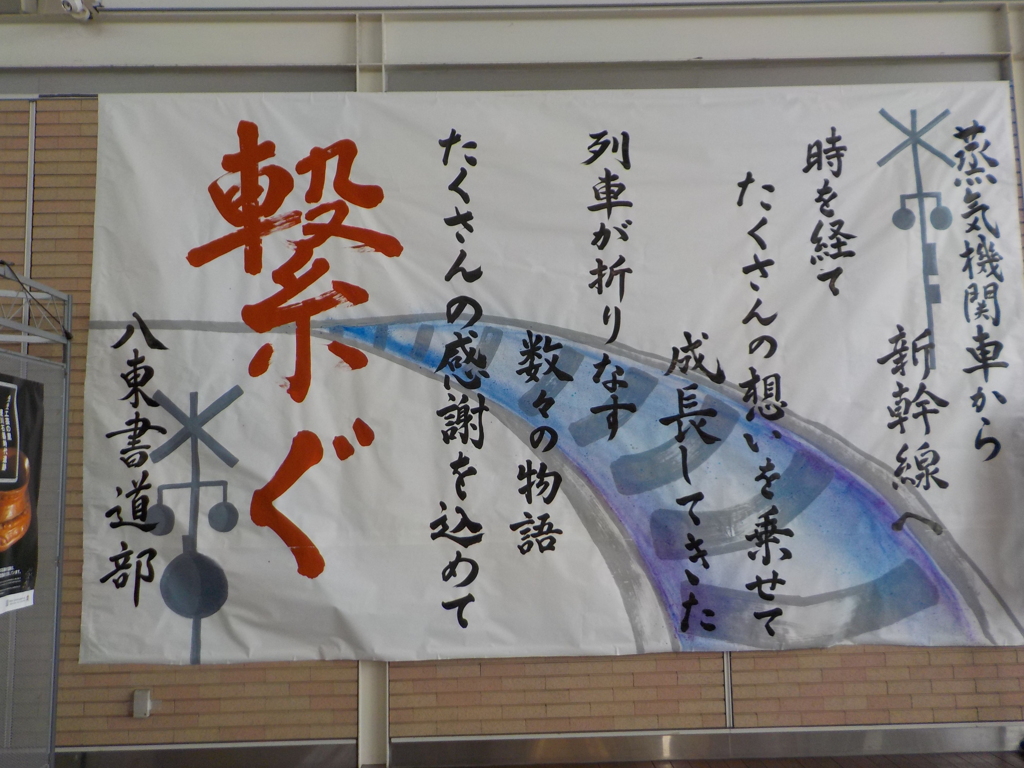 蒸気機関車から
新幹線へ
時を経て
たくさんの想いを乗せて
成長してきた
列車が折りなす
数々の物語
たくさんの感謝を込めて
繋ぐ
八東書道部